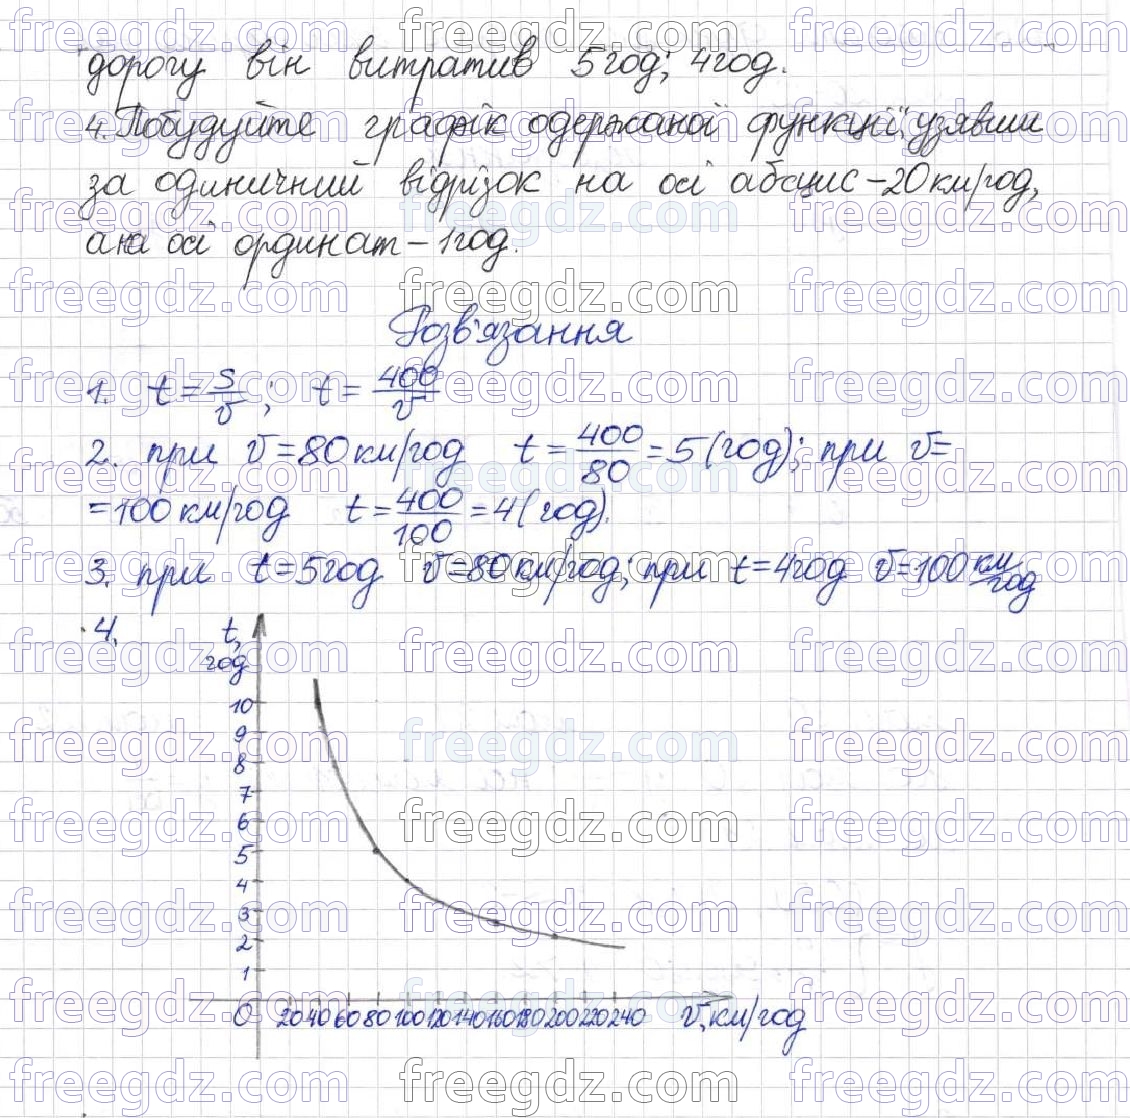 дорогу він витратив 5 год; 4 год.
4. Побудуйте графік одержаної функції, узявши
за одиничний відрізок на осі абсцис – 20 км/год,
а на осі ординат – 1 год.
Розв'язання
1. t = s/v; t = 400/v
2. при v = 80 км/год t = 400/80 = 5 (год); при v =
= 100 км/год t = 400/100 = 4 (год).
3. при t = 5 год v = 80 км/год; при t = 4 год v = 100 км/год
4.
t, год
10
9
8
7
6
5
4
3
2
1
0 20 40 60 80 100 120 140 160 180 200 220 240 v, км/год
freegdz.com